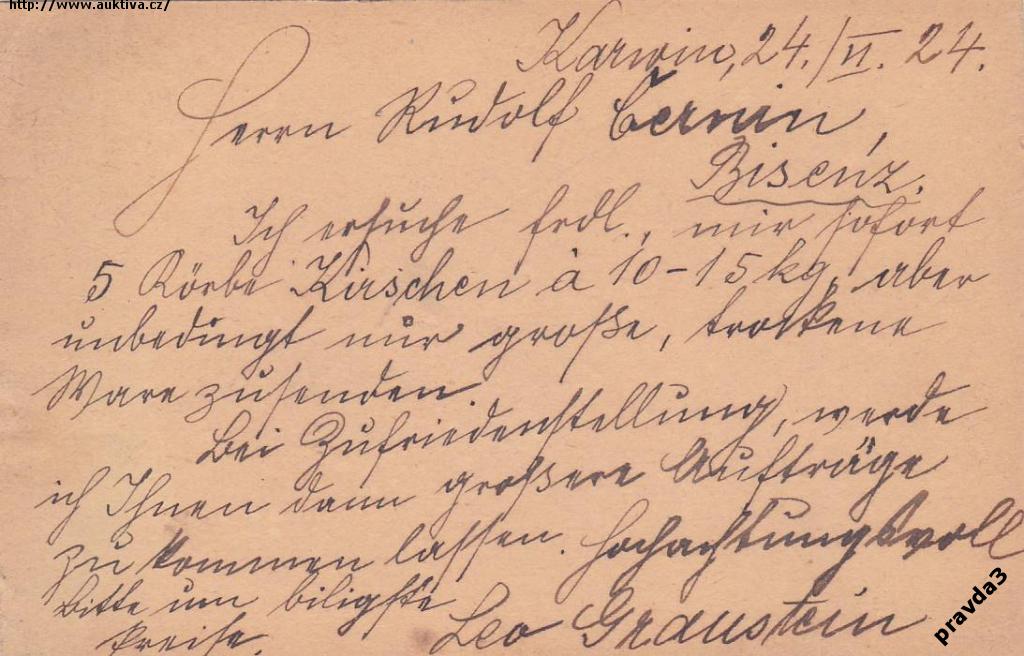 http://www.auktiva.cz/
Karwin, 24./VI. 24.
Herrn Rudolf Černin,
Bisenz.
Ich ersuche frdl., mir sofort
5 Körbe Kirschen à 10-15 kg, aber
unbedingt nur große, trockene
Ware zusenden.
Bei Zufriedenstellung, werde
ich Ihnen dann großere Aufträge
zu kommen lassen. Hochachtungsvoll
Bitte um biligste
Preise.
Leo Graustein
pravda3